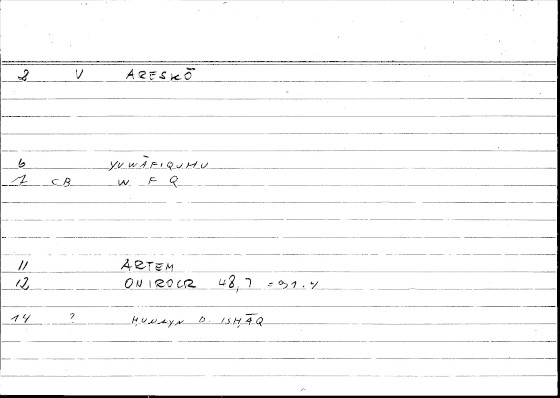 8 V ARESKŌ
6 YUWĀFIQUHU
1 CB W F Q
11 ARTEM
12 ONIROCR 48,7 = 91.4
14 ? ḤUNAYN B. ISḤĀQ